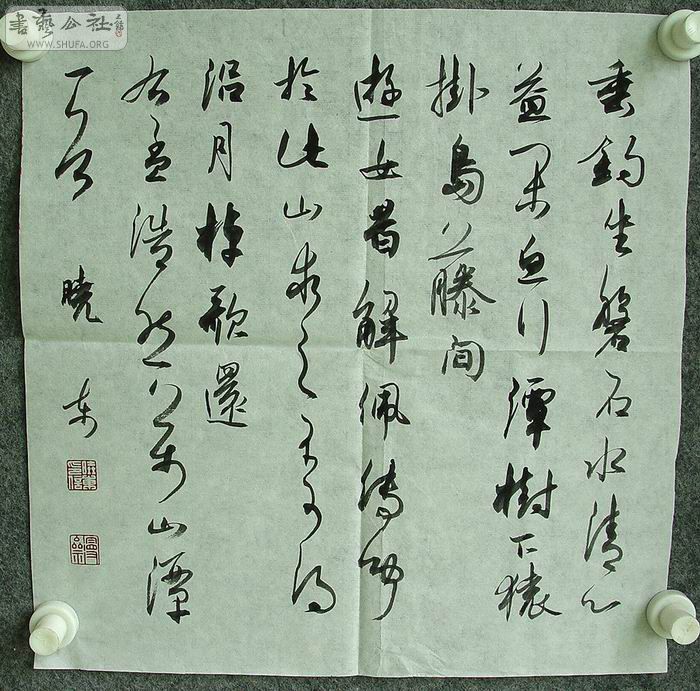 書藝公社
WWW.SHUFA.ORG
垂釣坐磐石水清心
益閒魚行潭樹下猿
掛島藤間
遊女昔解佩傳聞
於此山求之不可得
沿月棹歌還
右孟浩然萬山潭
一首 曉東